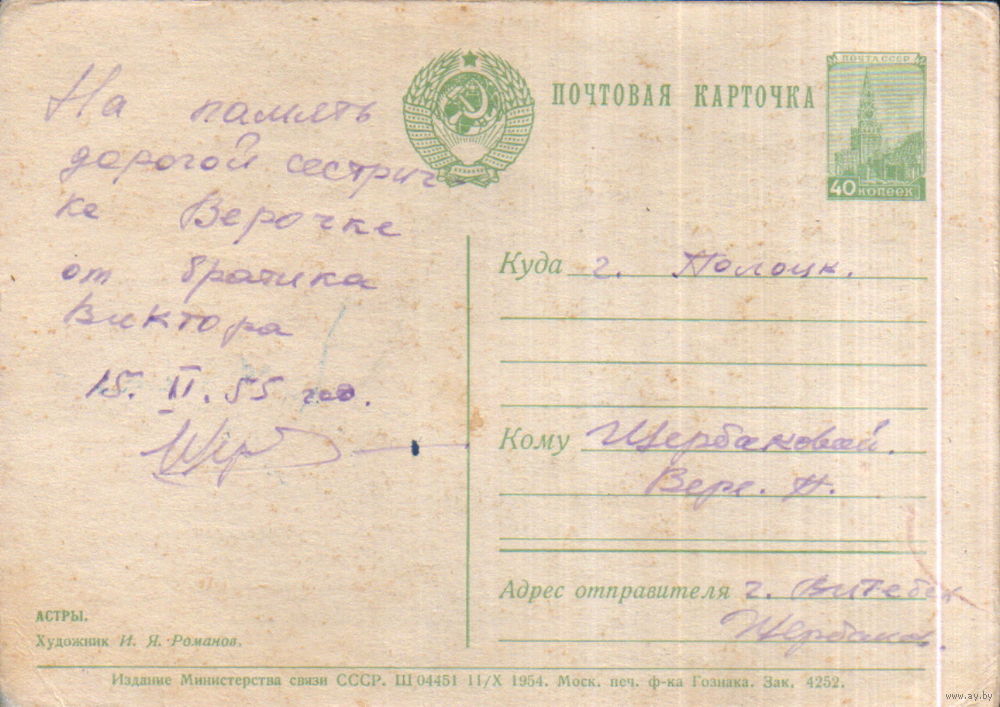 На память
дорогой сестрич-
ке Верочке
от братика
Виктора
15. II. 55 год.
ПОЧТОВАЯ КАРТОЧКА
ПОЧТА СССР
40 КОПЕЕК
Куда г. Полоцк.
Кому Щербаковай.
Вере. П.
Адрес отправителя г. Витебск
Щербаков.
АСТРЫ.
Художник И. Я. Романов.
Издание Министерства связи СССР. Ш 04451 11/X 1954. Моск. печ. ф-ка Гознака. Зак. 4252.
www.ay.by